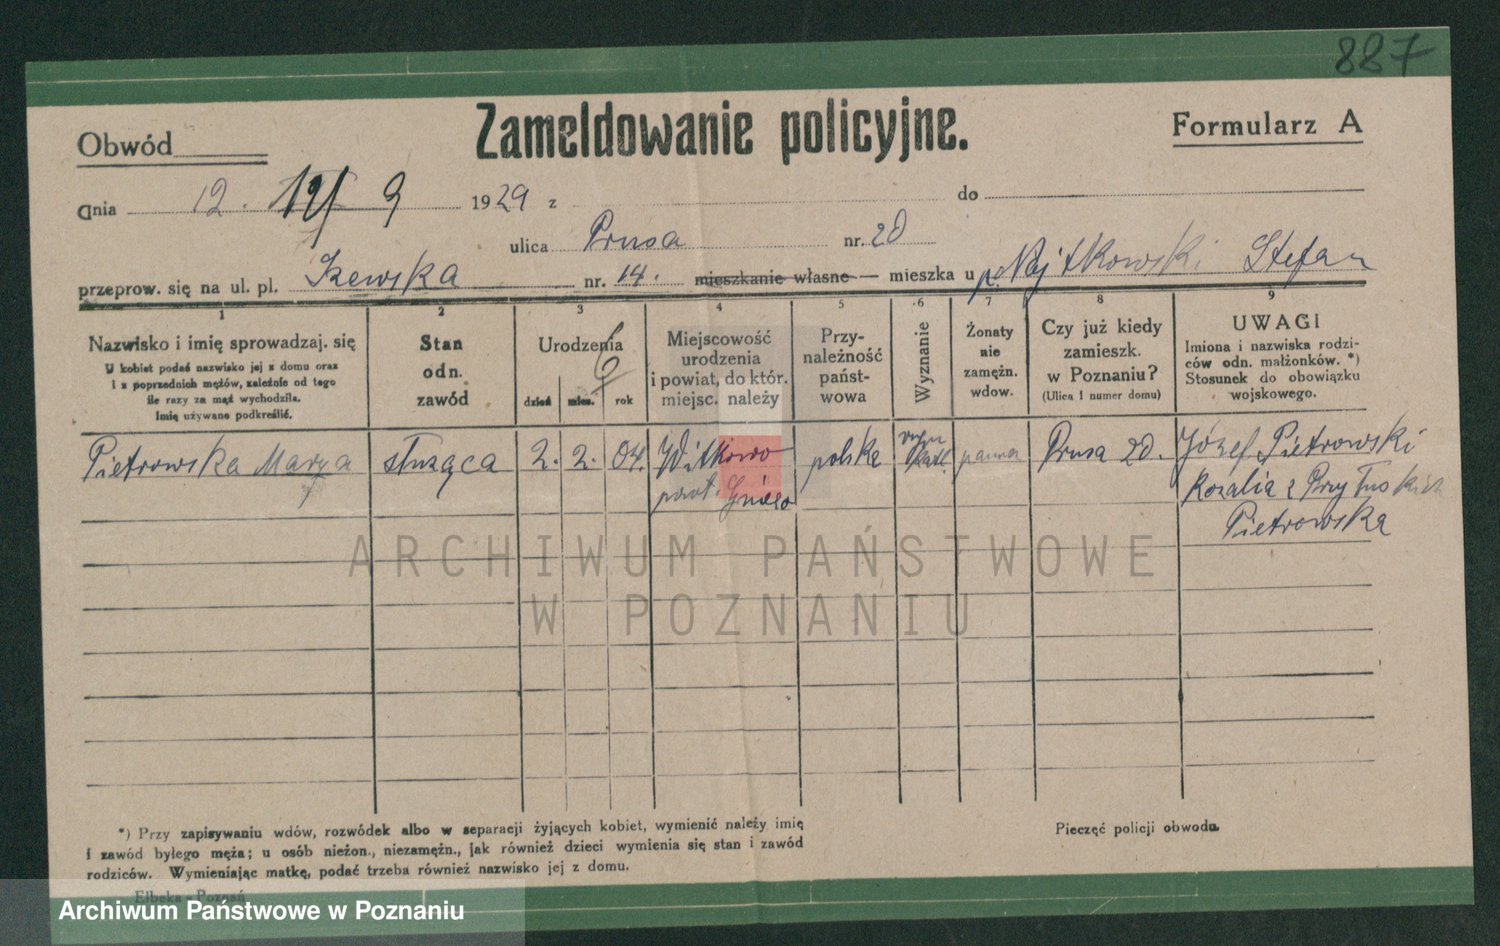 887
Zameldowanie policyjne.
Obwód
Formularz A
dnia 12. 9 1929 z do
ulica Prusa nr. 20
przeprow. się na ul. pl. nr. 14. mieszkanie własne — mieszka u p. Stefan
1 2 3 4 5 6 7 8 9
Nazwisko i imię sprowadzaj. się
U kobiet podać nazwisko jej z domu oraz
i z poprzednich mężów, zależnie od tego
ile razy za mąż wychodziła.
Imię używane podkreślić.
Stan
odn.
zawód
Urodzenia
dzień mies. rok
Miejscowość
urodzenia
i powiat, do któr.
miejsc. należy
Przy-
należność
państ-
wowa
Wyznanie
Żonaty
nie
zamężn.
wdow.
Czy już kiedy
zamieszk.
w Poznaniu?
(Ulica i numer domu)
UWAGI
Imiona i nazwiska rodzi-
ców odn. małżonków. *)
Stosunek do obowiązku
wojskowego.
Pietrowska Marya służąca 2. 2. 04. Witkowo polska panna Prusa 20. Józef Pietrowski
powt. Rozalia z
Pietrowska
ARCHIWUM PAŃSTWOWE
W POZNANIU
*) Przy zapisywaniu wdów, rozwódek albo w separacji żyjących kobiet, wymienić należy imię
i zawód byłego męża; u osób nieżon., niezamężn., jak również dzieci wymienia się stan i zawód
rodziców. Wymieniając matkę, podać trzeba również nazwisko jej z domu.
Pieczęć policji obwodu.
Elbeka - Poznań
Archiwum Państwowe w Poznaniu